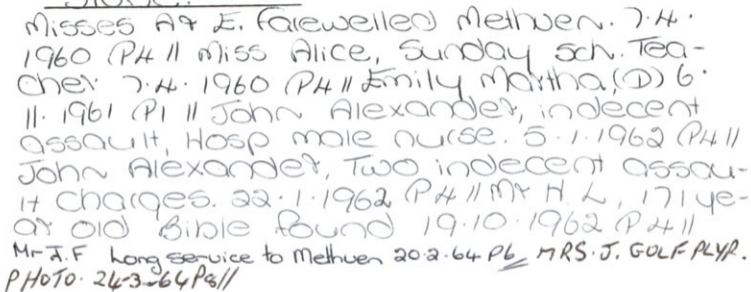 Misses A & E. farewelled Methven. 7.4.
1960 P4 || Miss Alice, Sunday sch. Tea-
cher 7.4. 1960 P4 || Emily Martha, (D) 6.
11. 1961 P1 || John Alexander, indecent
assault, Hosp male nurse. 5.1.1962 P4 ||
John Alexander, Two indecent assau-
lt charges. 22.1.1962 P4 || Mr H. L, 171 ye-
ar old Bible found 19.10.1962 P4 ||
Mr J.F Long service to Methven 20.2.64 P6 MRS. J. GOLF PLYR.
PHOTO. 24-3-64 P8 ||